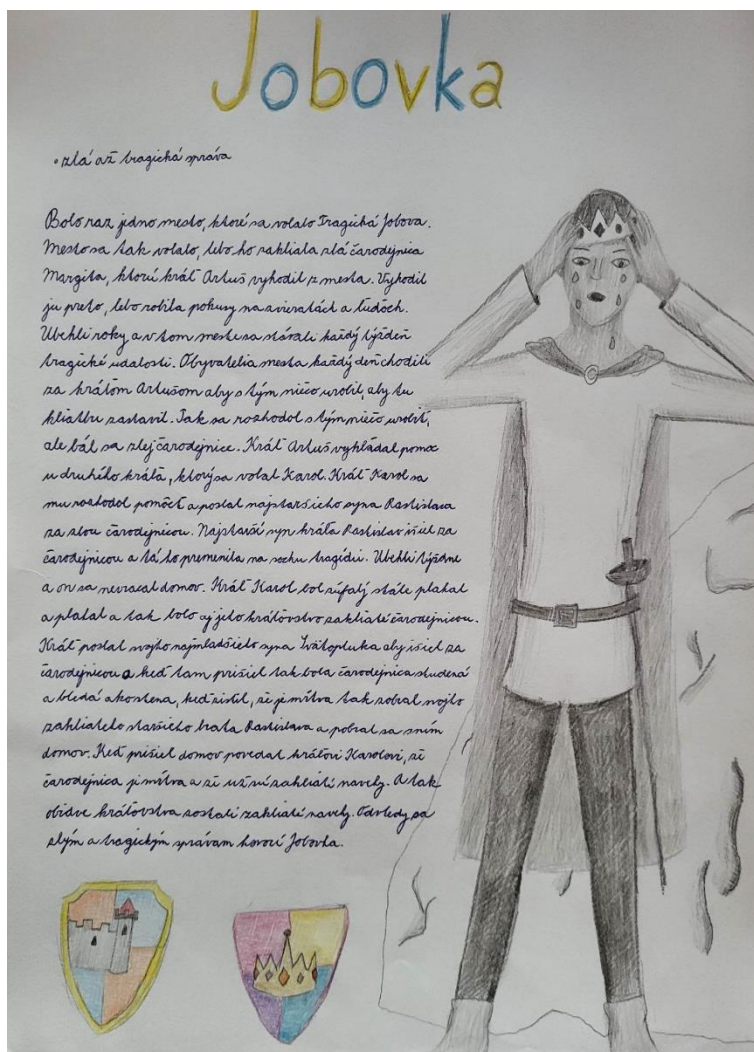 Jobovka
• zlá až tragická správa
Bolo raz jedno mesto, ktoré sa volalo Tragická Jobova.
Mesto sa tak volalo, lebo ho zakliala zlá čarodejnica
Margita, ktorú kráľ Artuš vyhodil z mesta. Vyhodil
ju preto, lebo robila pokusy na zvieratách a ľuďoch.
Ubehli roky a v tom meste sa stávali každý týždeň
tragické udalosti. Obyvatelia mesta každý deň chodili
za kráľom Artušom aby s tým niečo urobil, aby tu
kliatbu zastavil. Tak sa rozhodol s tým niečo urobiť,
ale bál sa zlej čarodejnice. Kráľ Artuš vyhľadal pomoc
u druhého kráľa, ktorý sa volal Karol. Kráľ Karol sa
mu rozhodol pomôcť a poslal najstaršieho syna Rastislava
za zlou čarodejnicou. Najstarší syn kráľa Rastislav išiel za
čarodejnicou a tá ho premenila na sochu tragédii. Ubehli týždne
a on sa nevracal domov. Kráľ Karol bol zúfalý stále plakal
a plakal a tak bolo aj jeho kráľovstvo zakliaté čarodejnicou.
Kráľ poslal svojho najmladšieho syna Svätopluka aby išiel za
čarodejnicou a keď tam prišiel tak bola čarodejnica studená
a bledá ako stena, keď zistil, že je mŕtva tak zobral svojho
zakliateho staršieho brata Rastislava a pobral sa sním
domov. Keď prišiel domov povedal kráľovi Karolovi, že
čarodejnica je mŕtva a že už sú zakliatí navely. A tak
obidve kráľovstva zostali zakliatí navely. Odvtedy sa
zlým a tragickým správam hovorí Jobovka.